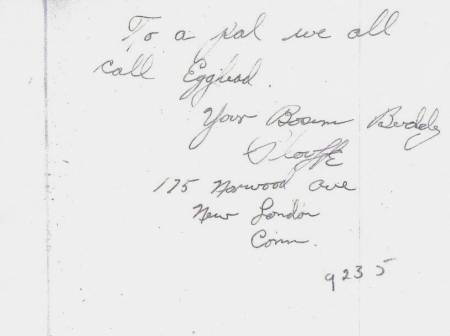 To a pal we all
call Egghead.
Your Bosum Buddy
175 Norwood Ave
New London
Conn.
9235